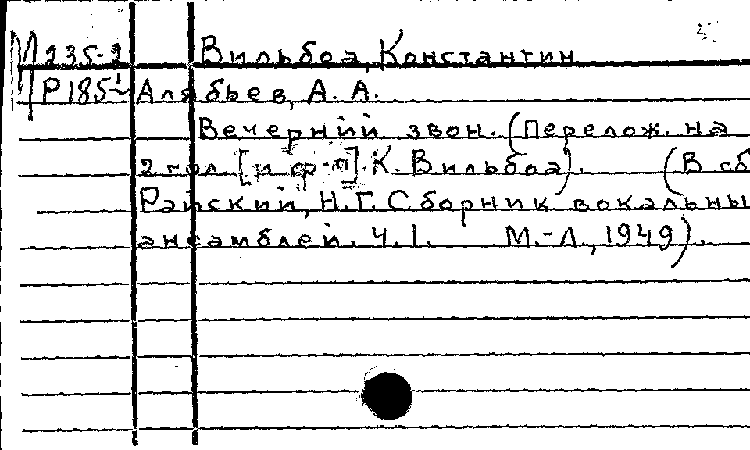 М 235-2 Вильбоа, Константин
Р185 Алябьев, А. А.
Вечерний звон. (Перелож. на
2 гол. [и ф-п] К. Вильбоа). (В сб
Райский, Н.Г. Сборник вокальны
ансамблей. Ч.1. М.-Л., 1949).